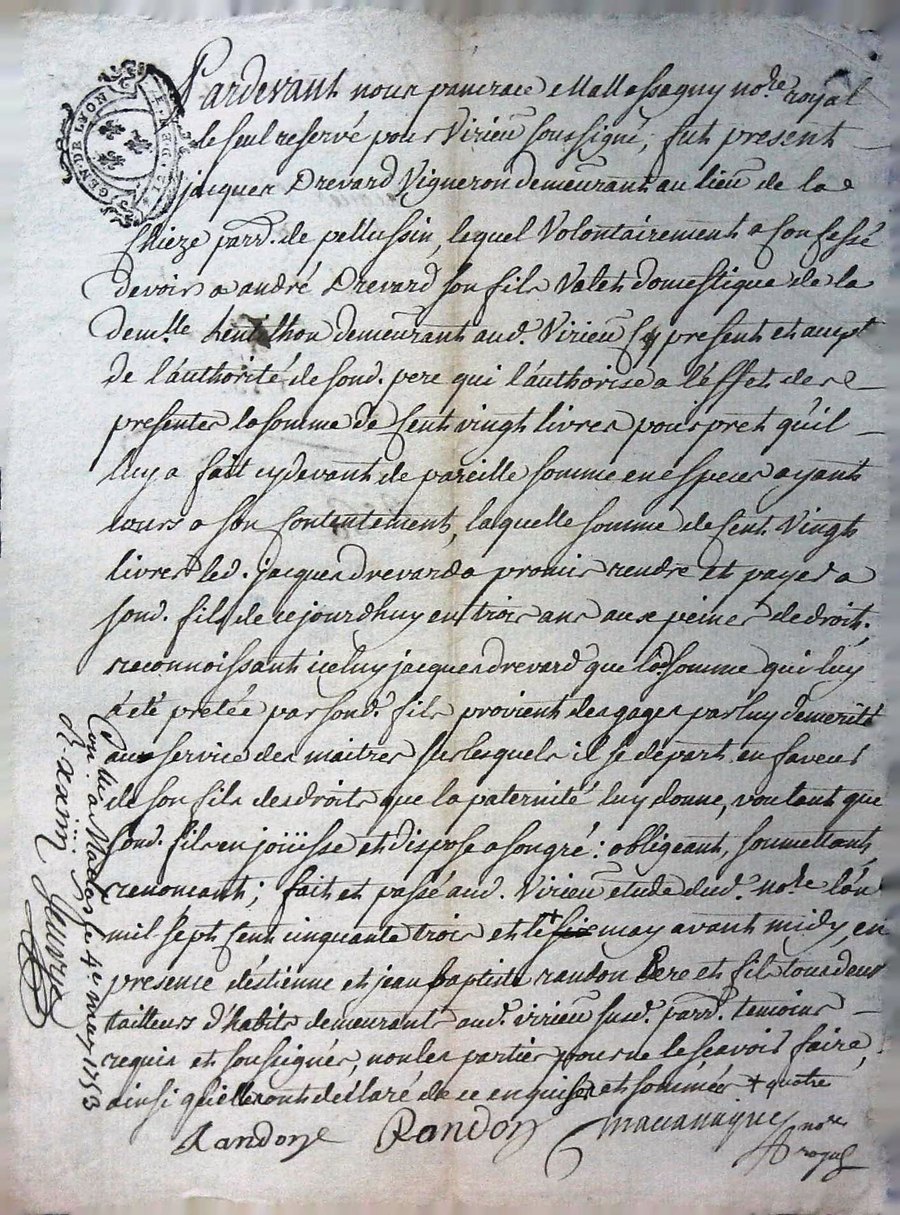 GEN. DE LYON
Pardevant nous pancrace Mallassagny no.re royal
le seul reservé pour Virieu soussigné, fut present
jacques Drevard Vigneron demeurant au lieu de la
Chieze parr. de pellussin, lequel Volontairement a Confessé
devoir a andré Drevard son fils Valet domestique de la
dem.lle Lentilhon demeurant aud. Virieu Cy present et accept
de l'authorité de sond. pere qui l'authorise a l'effet des
presentes la somme de Cent vingt livres pour pret qu'il
luy a fait cy devant de pareille somme en especes ayant
cours a son Contentement, laquelle somme de Cent Vingt
livres led. jacques drevard a promis rendre et payer a
sond. fils de ce jourdhuy en trois ans aux peines de droit;
reconnoissant iceluy jacques drevard que lad. somme qui luy
a été pretée par sond. fils provient des gages par luy demerité
au service des maitres sur lesquels il se départ en faveur
de son fils des droits que la paternité luy donne, voulant que
sond. fils en joüisse et dispose a son gré: obligeant, soumettant,
renoncant; fait et passé aud. Virieu étude dud. no.re l'an
mil sept Cent cinquante trois et le + six may avant midy, en
presence d'éstienne et jean baptiste randon Pere et fils tous deux
tailleurs d'habits demeurants aud. virieu susd. parr. temoins
requis et soussignés, non les parties pour ne le scavoir faire,
ainsi qu'elles ont déclaré de ce enquises et sommées + quatre
Randon Randon no.re
royal
Con.lle a Maclas le 4.e may 1753